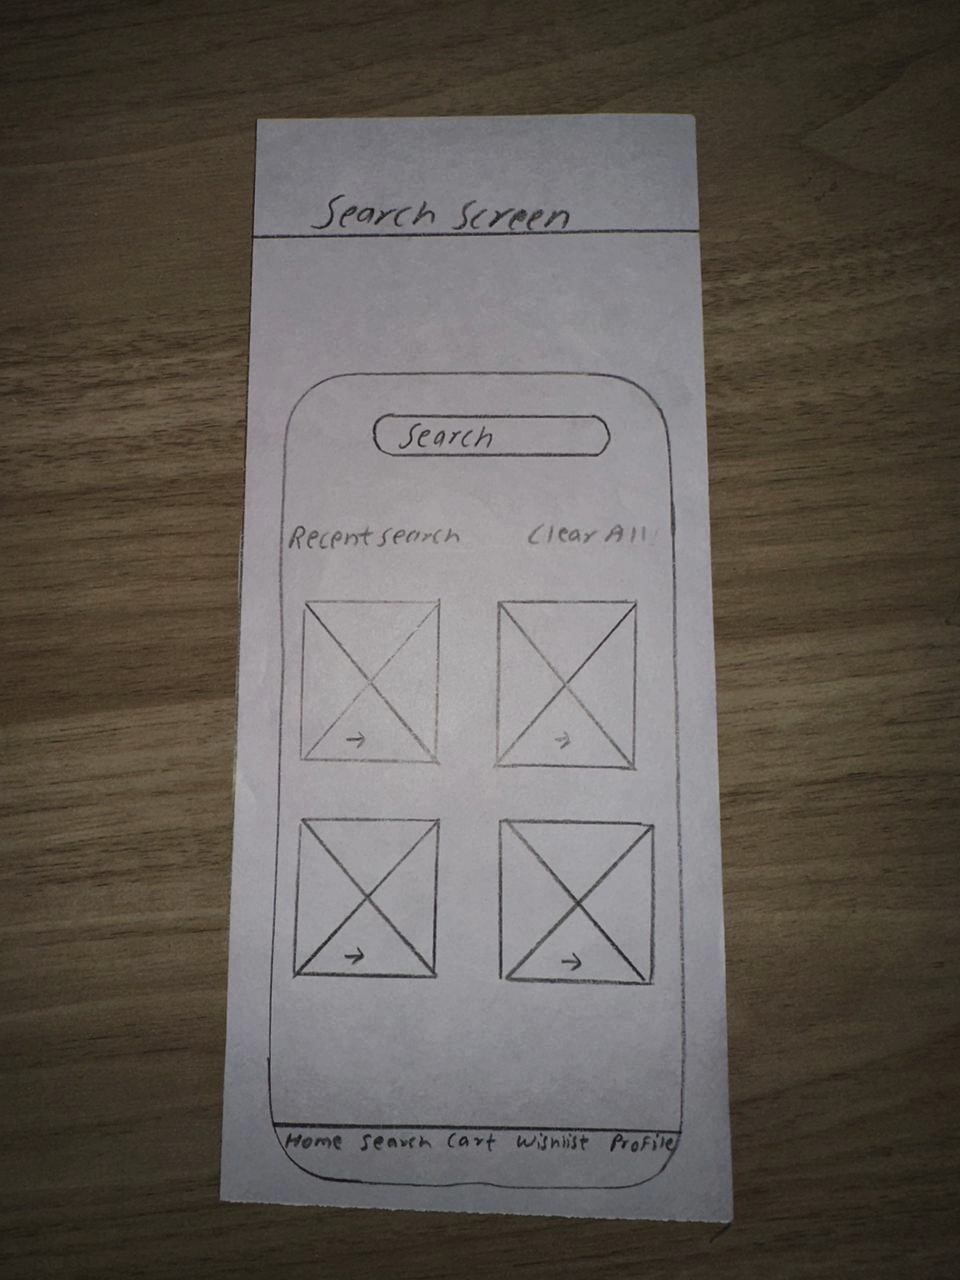 Search Screen
Search
Recent search Clear All
→ →
→ →
Home Search Cart Wishlist Profile